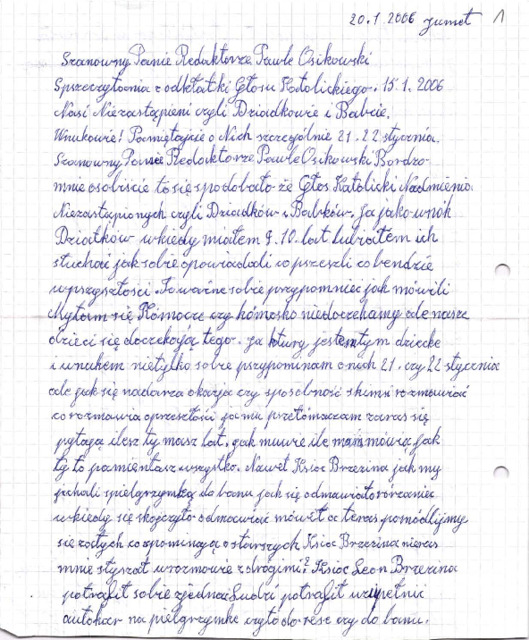 20.1.2006 Jumet 1
Szanowny Panie Redaktorze Pawle Osikowski
Sprzeczytoania z odktatki Głosu Katolickiego. 15.1.2006
Nasi Niezastąpieni czyli Dziadkowie i Babcie.
Wnukowie! Pamiętajcie o Nich szczególnie 21.22 stycznia.
Szanowny Panie Redaktorze Pawle Osikowski Bardzo
mnie osobiście to się spodobało że Głos Katolicki Nadmienia.
Niezastąpionych czyli Dziadków i Babków. Ja jako wnók
Dziatków w kiedy miałem 9.10. lat lubiałem ich
słuchać jak sobie opowiadali co przeszli co bendzie
w przyszłości. To ważne sobie przypomniec jak mówili
My to im się czy niedoczekamy ale nasze
dzieci się doczekają tego. Ja ktury jestem tym dziecke
i wnukem nietylko sobie przypominam o nich 21. czy 22 stycznia
ale jak się nadarza okazja czy sposobność skimś rozmawiać
co rozmawia o przeszłości ja mu przetómaczam zaras się
pytają ilesz ty masz lat. jak muwie ile mam mówią Jak
ty to pamientasz wszystko. Nawet Ksioc Brzezina jak my
jechali spielgrzymką do banu jak się odmawiało rórzaniec
w kiedy się skojczyło odmawiać mówił a teras pomódlijmy
się zatych co spominają o starszych Ksioc Brzezina nieras
mnie słyszał w rozmowie z drógimi? Ksioc Leon Brzezina
potrafił sobie zjednać Ludzi potrafił wzupełnić
autokar na pielgrzymke czyto do czy do banu.